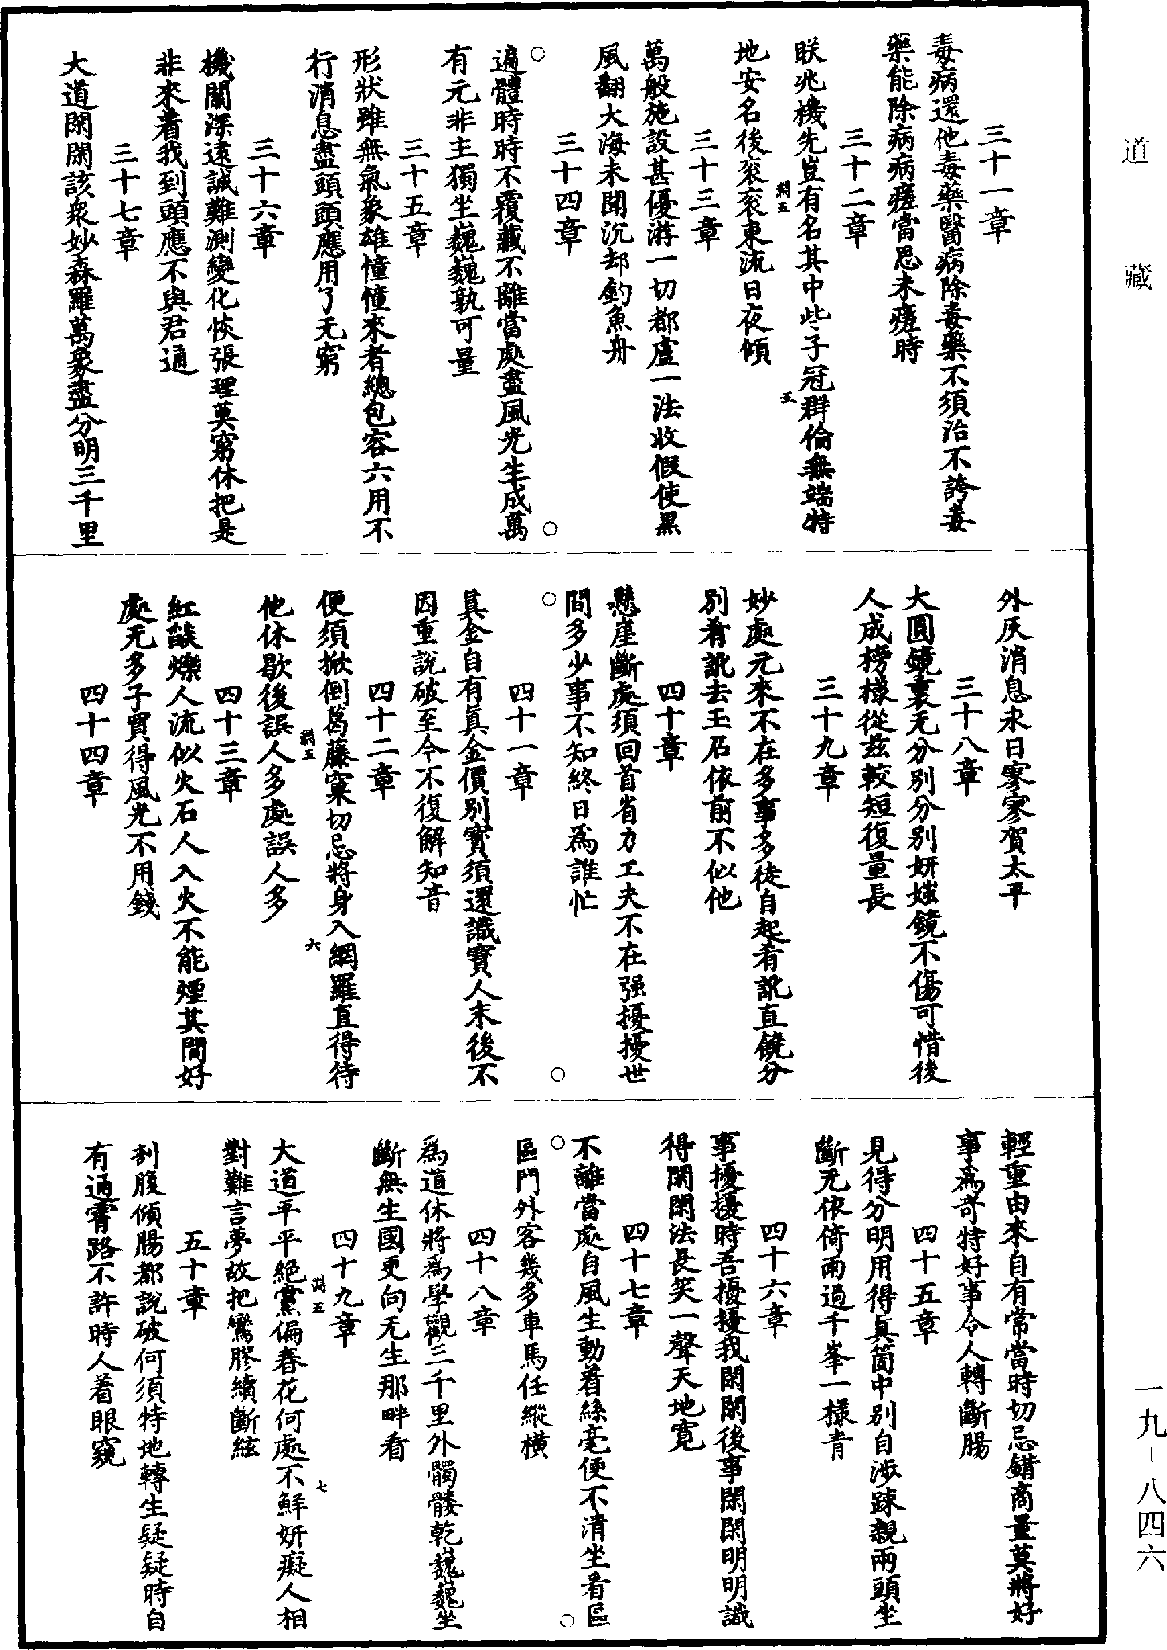 道藏
三十一章
毒病還他毒藥醫病除毒藥不須治不誇毒
藥能除病病瘥當思未瘥時
三十二章
朕兆機先豈有名其中些子冠群倫無端特
地安名後袞袞東流日夜傾
三十三章
萬般施設甚優游一切都盧一法收假使黑
風翻大海未聞沉却釣魚舟
三十四章
遍體時時不覆藏不離當處盡風光生成萬
有元非主獨坐巍巍孰可量
三十五章
形狀雖無氣象雄憧憧來者總包容六用不
行消息盡頭頭應用了无窮
三十六章
機關深遠誠難測變化恢張理莫窮休把是
非來著我到頭應不與君通
三十七章
大道閑閑該衆妙森羅萬象盡分明三千里
外灰消息永日寥寥賀太平
三十八章
大圓鏡裏无分別分別妍媸鏡不傷可惜後
人成榜樣從茲較短復量長
三十九章
妙處元來不在多事多徒自起肴訛直饒分
別肴訛去玉石依前不似他
四十章
懸崖斷處須回首省力工夫不在强擾擾世
間多少事不知終日為誰忙
四十一章
真金自有真金價別寶須還識寶人末後不
因重說破至今不復解知音
四十二章
便須掀倒葛藤窠切忌將身入網羅直得待
他休歇後誤人多處誤人多
四十三章
紅燄爍人流似火石人入火不能煙其間好
處无多子買得風光不用錢
四十四章
輕重由來自有常當時切忌錯商量莫將好
事為奇特好事令人轉斷腸
四十五章
見得分明用得真箇中別自涉踈親兩頭坐
斷无依倚雨過千峯一樣青
四十六章
事擾擾時吾擾擾我閑閑後事閑閑明明識
得閑閑法長笑一聲天地寬
四十七章
不離當處自風生動着絲毫便不清坐看區
區門外客幾多車馬任縱橫
四十八章
為道休將為學觀三千里外髑髏乾巍巍坐
斷無生國更向无生那畔看
四十九章
大道平平絕黨偏春花何處不鮮妍癡人相
對難言夢故把鸞膠續斷絃
五十章
刳腹傾腸都說破何須特地轉生疑疑時自
有通霄路不許時人着眼窺
一九—八四六